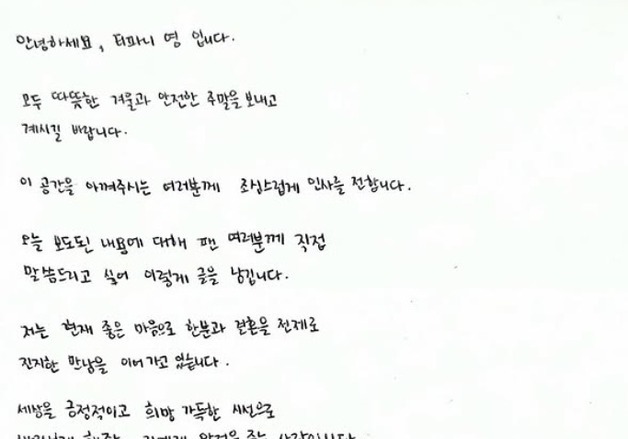 안녕하세요, 티파니 영 입니다.
모두 따뜻한 겨울과 안전한 주말을 보내고
계시길 바랍니다.
이 공간을 아껴주시는 여러분께 조심스럽게 인사를 전합니다.
오늘 보도된 내용에 대해 팬 여러분께 직접
말씀드리고 싶어 이렇게 글을 남깁니다.
저는 현재 좋은 마음으로 한분과 결혼을 전제로
진지한 만남을 이어가고 있습니다.
세상을 긍정적이고 희망 가득한 시선으로